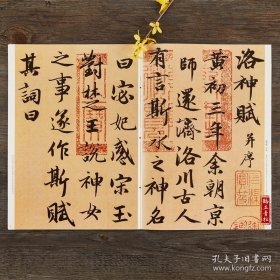 洛神賦 并序
黃初三年余朝京
師還濟洛川古人
有言斯水之神名
曰宓妃感宋玉
對楚王說神女
之事遂作斯賦
其詞曰
孔夫子旧书网